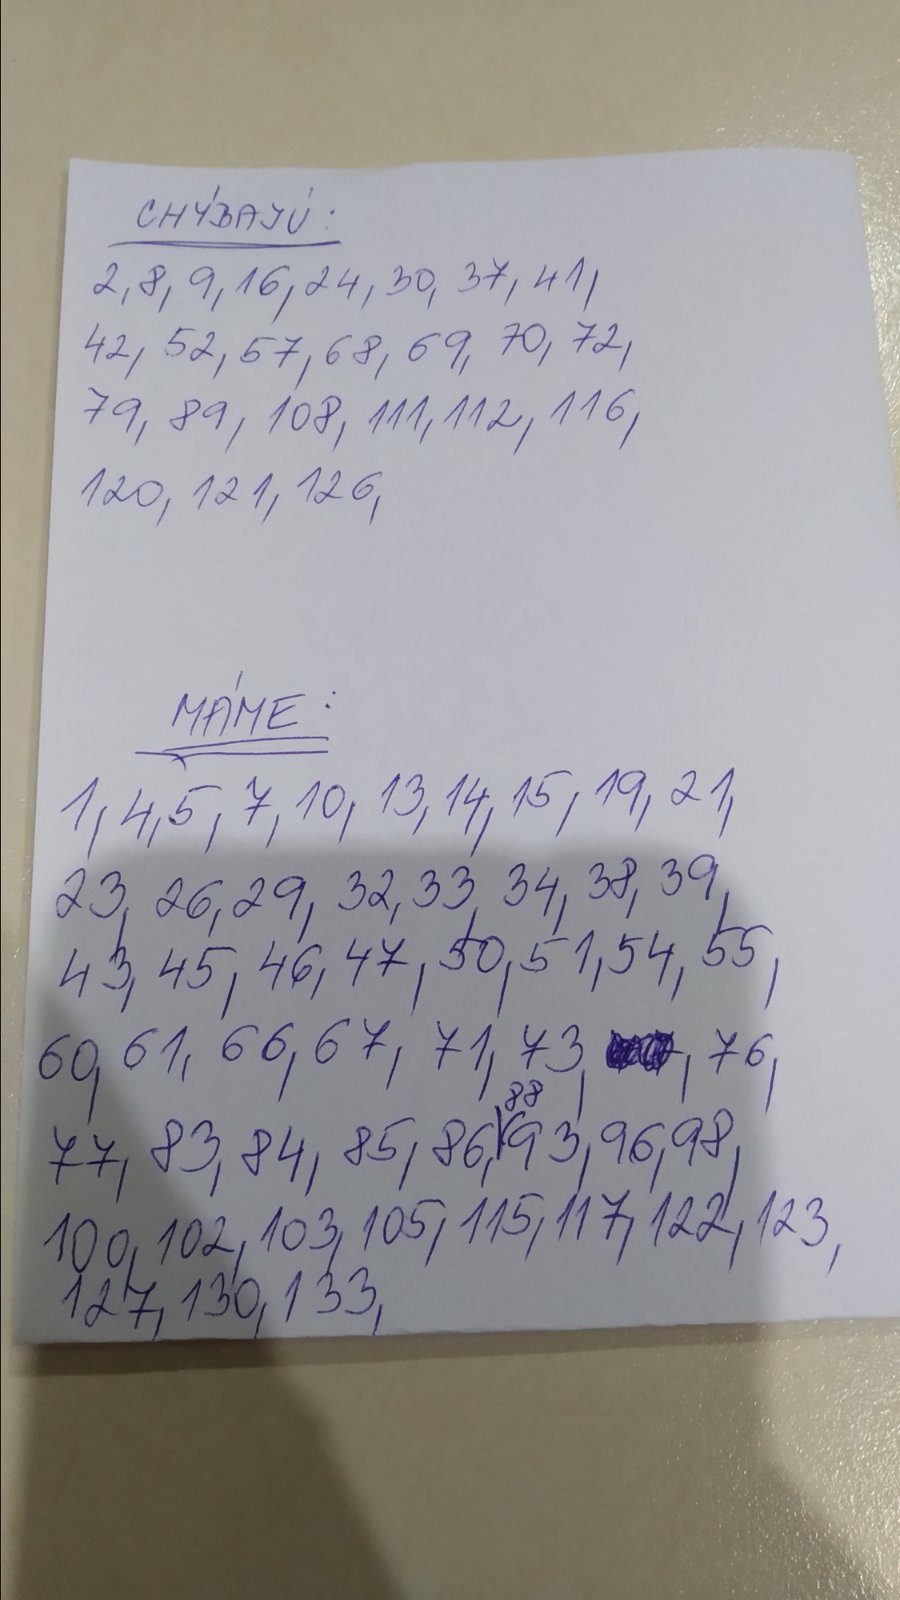 CHÝBAJÚ:
2, 8, 9, 16, 24, 30, 37, 41,
42, 52, 57, 68, 69, 70, 72,
79, 89, 108, 111, 112, 116,
120, 121, 126,
MÁME:
1, 4, 5, 7, 10, 13, 14, 15, 19, 21,
23, 26, 29, 32, 33, 34, 38, 39,
43, 45, 46, 47, 50, 51, 54, 55,
60, 61, 66, 67, 71, 73, , 76,
88
77, 83, 84, 85, 86, 93, 96, 98,
100, 102, 103, 105, 115, 117, 122, 123,
127, 130, 133,